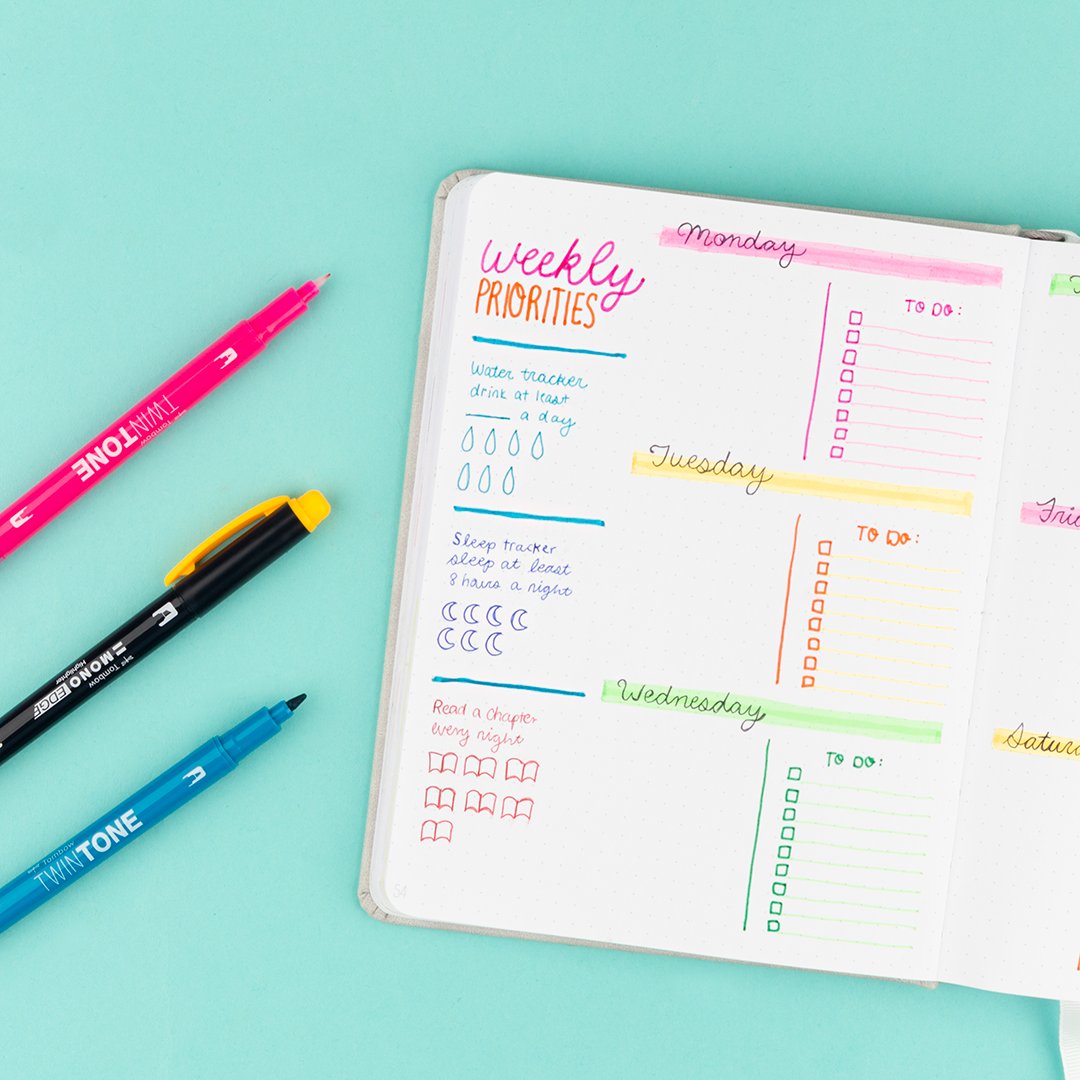 weekly
PRIORITIES
Water tracker
drink at least
____ a day
Sleep tracker
sleep at least
8 hours a night
Read a chapter
every night
54
Monday
TO DO:
Tuesday
TO DO:
Wednesday
TO DO:
T
Fri
Satur
Tombow
TWINTONE
Tombow
MONO EDGE
Highlighter
Tombow
TWINTONE